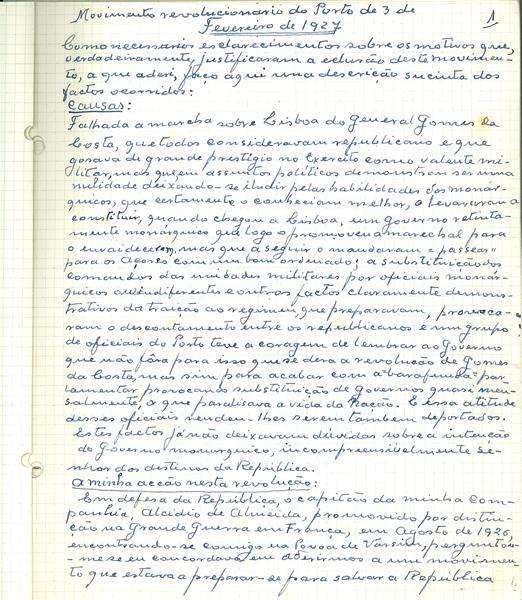 Movimento revolucionário do Porto de 3 de
Fevereiro de 1927
1
Como necessários esclarecimentos sobre os motivos que,
verdadeiramente, justificaram a eclusão deste movimen-
to, a que aderi, faço aqui uma descrição sucinta dos
factos ocorridos:
Causas:
Falhada a marcha sobre Lisboa do General Gomes da
Costa, que todos consideravam republicano e que
gosava de grande prestígio no Exército como valente mi-
litar, mas que, em assuntos políticos demonstrou ser uma
nulidade deixando-se iludir pelas habilidades dos monár-
quicos, que certamente o conheciam melhor, o levaram a
constituir, quando chegou a Lisboa, um governo retinta-
mente monárquico que logo o promoveu a marechal para
o envaidecerem, mas que a seguir o mandaram = passear=
para os Açores com um bom ordenado; a substituição dos
comandos das unidades militares por oficiais monár-
quicos ou indiferentes e outros factos claramente demons-
trativos da traição ao regimen, que preparavam, provoca-
ram o descontamento entre os republicanos e um grupo
de oficiais do Porto teve a coragem de lembrar ao Governo
que não fôra para isso que se dera a revolução de Gomes
da Costa, mas sim para acabar com a barafunda par-
lamentar provocando substituição de governos quasi men-
salmente, o que paralisava a vida da Nação. E essa atitude
desses oficiais rendeu-lhes serem também deportados.
Estes factos já não deixavam dúvidas sobre a intenção
do Governo monárquico, incompreensivelmente se-
nhor dos distinos da República.
A minha acção nesta revolução:
Em defesa da República, o capitão da minha Com-
panhia, Alcídio de Almeida, promovido por distin-
ção na Grande Guerra em França, em Agosto de 1926,
encontrando-se comigo na Povoa de Varzim, perguntou-
me se eu concordava em aderirmos a um movimen-
to que estava a preparar-se para salvar a República